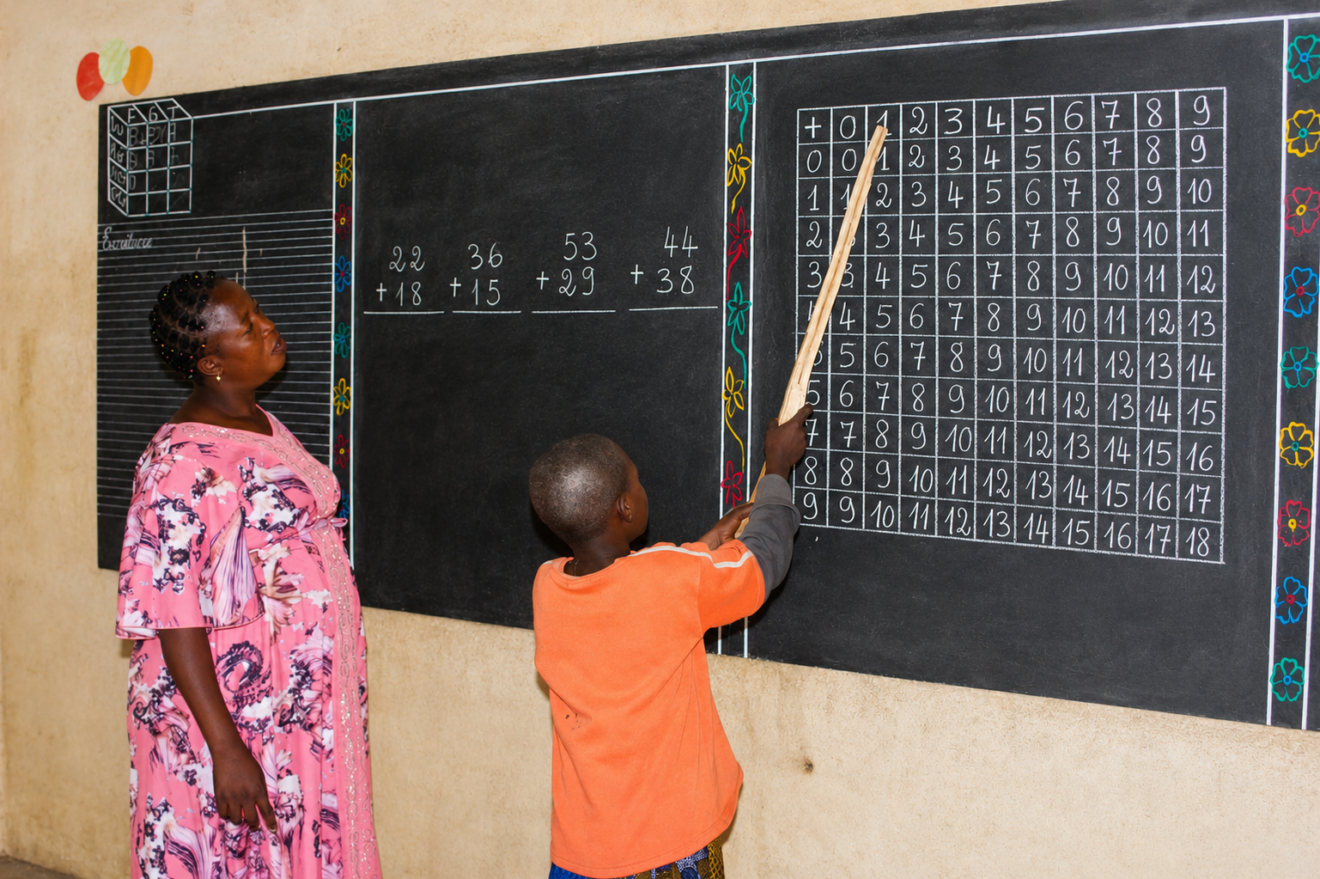 22 36 53 44
+18 +15 +29 +38
+ 0 1 2 3 4 5 6 7 8 9
0 0 1 2 3 4 5 6 7 8 9
1 1 2 3 4 5 6 7 8 9 10
2 3 4 5 6 7 8 9 10 11
3 3 4 5 6 7 8 9 10 11 12
4 5 6 7 8 9 10 11 12 13
5 6 7 8 9 10 11 12 13 14
6 7 8 9 10 11 12 13 14 15
7 7 8 9 10 11 12 13 14 15 16
8 8 9 10 11 12 13 14 15 16 17
9 9 10 11 12 13 14 15 16 17 18